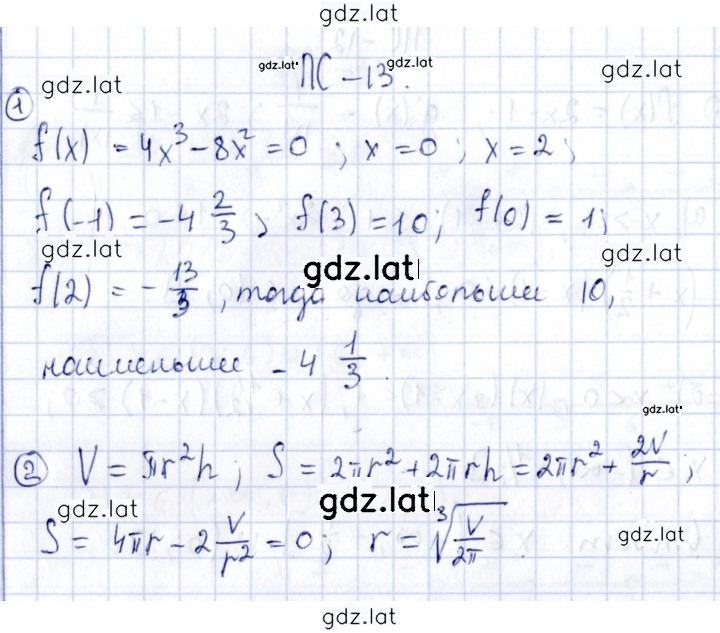 gdz.lat
gdz.lat ПС – 13. gdz.lat
gdz.lat gdz.lat
① f(x) = 4x³ – 8x² = 0 ; x = 0 ; x = 2 ;
f(–1) = –4 2/3 , f(3) = 10; f(0) = 1;
gdz.lat gdz.lat gdz.lat
f(2) = – 13/3 , тогда наибольшии 10,
наименьшии – 4 1/3 .
gdz.lat
② V = πr²h ; S = 2πr² + 2πrh = 2πr² + 2V/r ;
gdz.lat gdz.lat gdz.lat
S = 4πr – 2 V/r² = 0 ; r = ∛(V/2π) .
gdz.lat